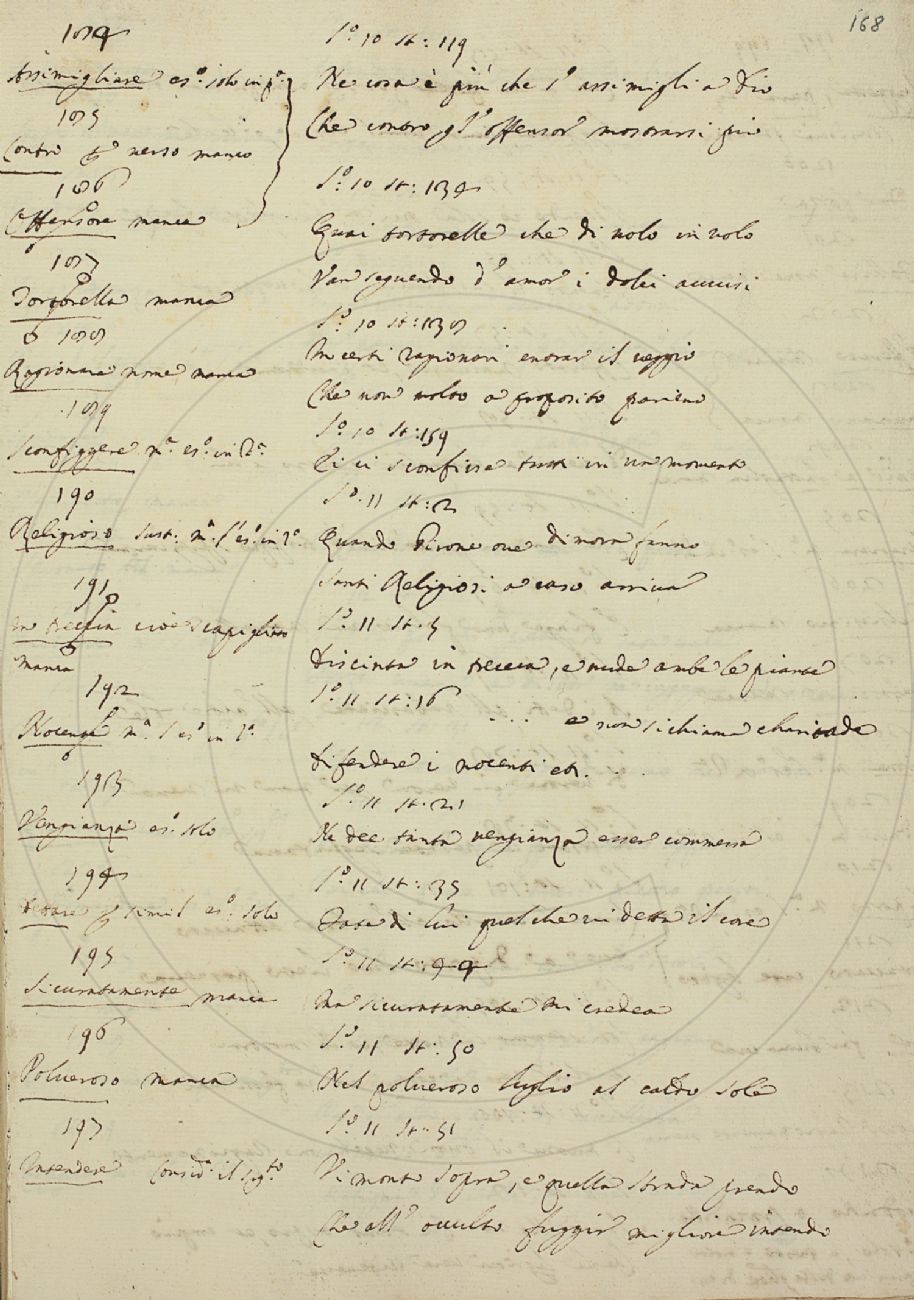 168
184
C.º 10 St: 119
Assimigliare es.º solo in p.ª
Ne cosa è più che l'assimigli a Dio
185
Che contro gl'offensor mostrarsi pio
Contro verso manca
186
C.º 10 St: 134
Offensore manca
Quai tortorelle che di volo in volo
187
Van seguendo d'amor i dolci avvisi
Tortorella manca
C.º 10 St: 138
188
In certi ragionari entrar il veggio
Ragionare nome manca
Che non molto a proposito parieno
189
C.º 10 St: 159
Sconfiggere es.º in
Ei ci sconfisse tutti in un momento
190
C.º 11 St: 2
Religioso Sust: es.º in
Quando Girone ove dimora fanno
Santi Religiosi a caso arriva
191
C.º 11 St. 5
In treccia cioè scapigliato
manca
Discinta in treccia, e nude ambe le piante
192
C.º 11 St: 16
... e non si chiama charitade
Nocente es.º in
Difendere i nocenti etc.
193
C.º 11 St. 21
Vengianza es.º solo
Ne dee tanta vengianza esser commessa
194
C.º 11 St: 35
Dettare simil es.º solo
Fate di lui quel che vi detta il core
195
C.º 11 St: 44
Sicuratamente manca
Ma sicuratamente mi credea
196
C.º 11 St: 50
Polveroso manca
Nel polveroso luglio al caldo sole
197
C.º 11 St: 51
Intendere Consid. il sig.to
Vi monto sopra, e quella strada prendo
Che all'occulto fuggir migliore intendo